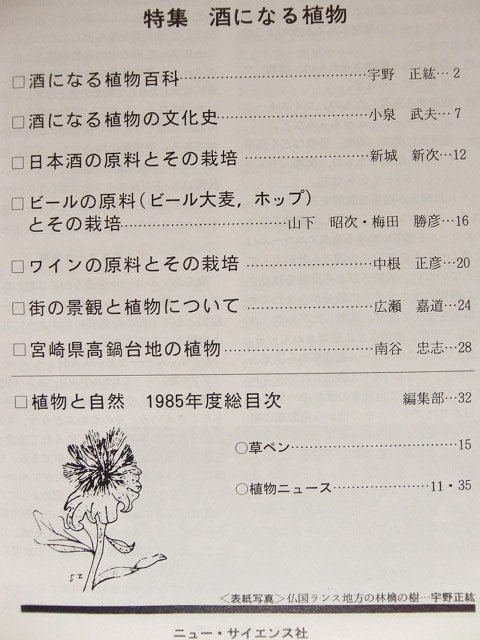 特集 酒になる植物
□酒になる植物百科……………………宇野 正紘…2
□酒になる植物の文化史………………小泉 武夫…7
□日本酒の原料とその栽培……………新城 新次…12
□ビールの原料(ビール大麦,ホップ)
とその栽培………………山下 昭次・梅田 勝彦…16
□ワインの原料とその栽培……………中根 正彦…20
□街の景観と植物について……………広瀬 嘉道…24
□宮崎県高鍋台地の植物………………南谷 忠志…28
□植物と自然 1985年度総目次 編集部…32
○草ペン……………………15
○植物ニュース…………11・35
<表紙写真>仏国ランス地方の林檎の樹…宇野正紘
ニュー・サイエンス社